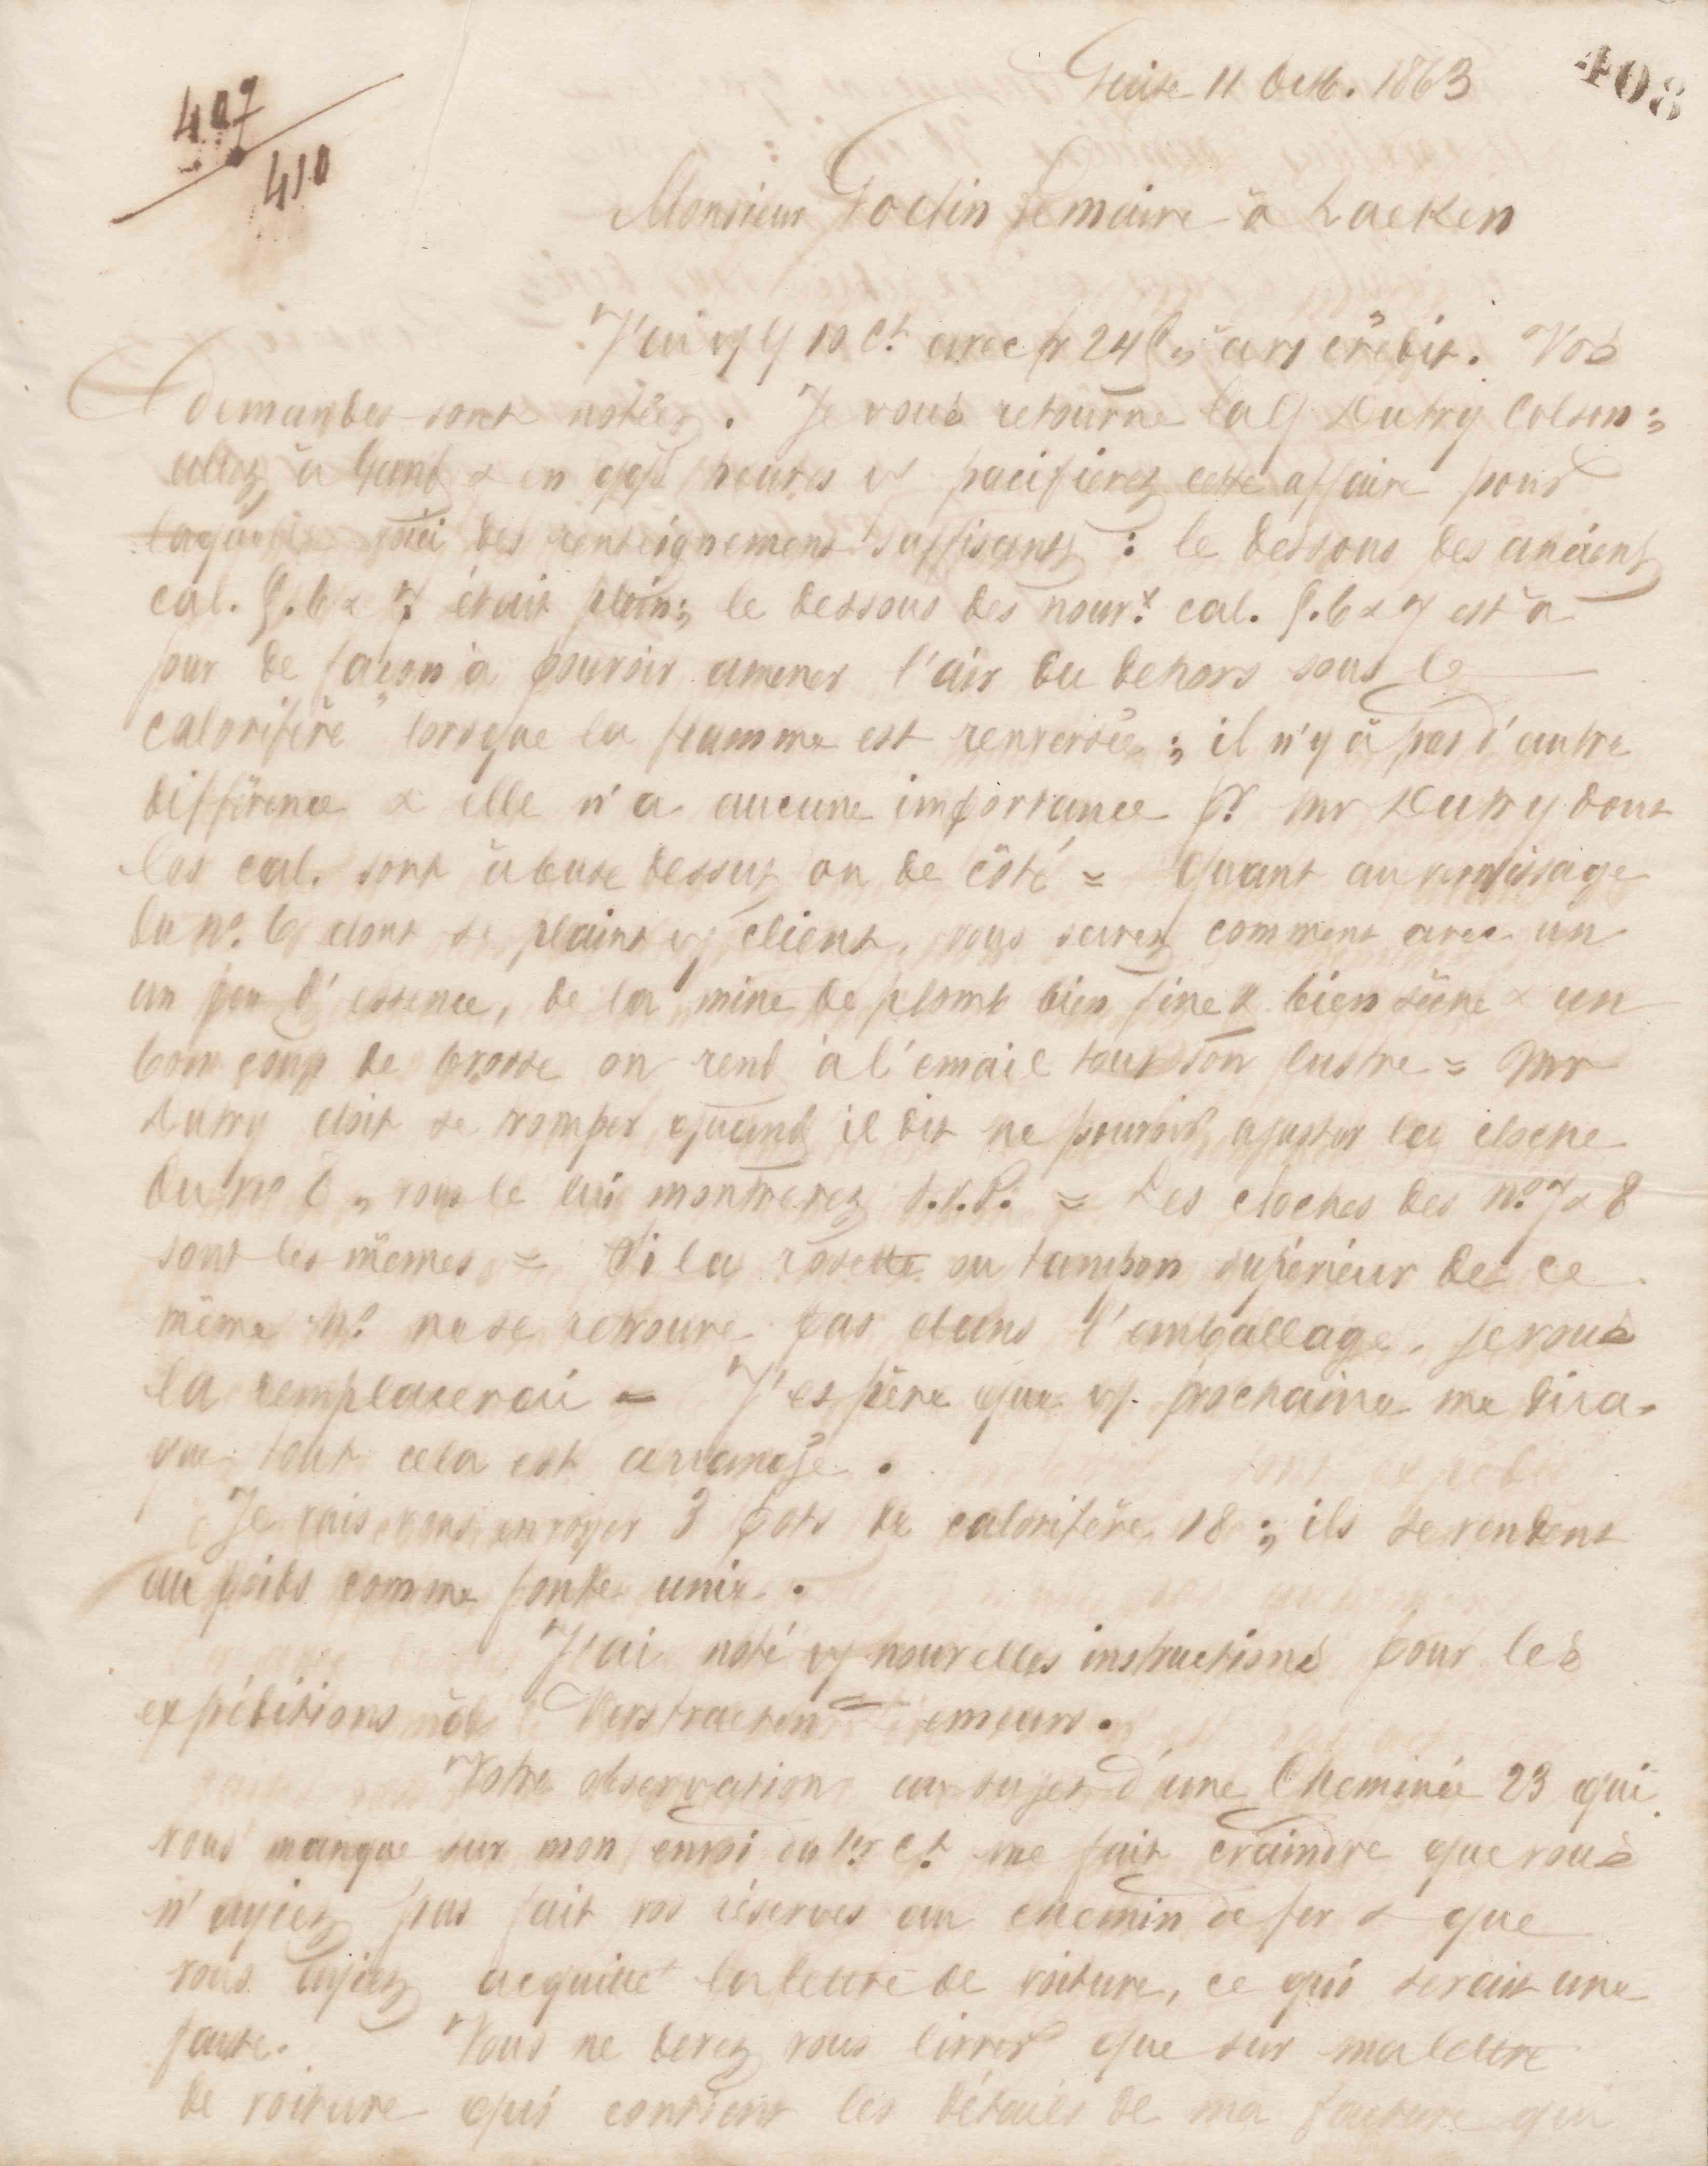 408
407
410
Guise 11 Octb. 1863
Monsieur Godin Lemaire à Laeken
J'ai vs 10 ct. avec fr 24 à vs crédit. Vos
demandes sont notées. Je vous retourne la Dutry Colson ;
allez à Gand & en qqs heures vs pacifierez cette affaire pour
laquelle voici des renseignements suffisants : le dessous des anciens
cal. 6 & 7 était plein ; le dessous des nouvx cal. 6 & 7 est à
jour de façon à pouvoir amener l'air du dehors sous le
calorifère lorsque la flamme est renversée ; il n'y a pas d'autre
différence & elle n'a aucune importance pr Mr Dutry dont
les cal. sont à buse dessus ou de côté = Quant au
du no. 6 dont se plaint vs client, vous savez comment avec un
un peu d'essence, de la mine de plomb bien fine & bien sèche & un
bon coup de brosse on rend à l'émail tout son lustre = Mr
Dutry doit se tromper quand il dit ne pouvoir ajuster la cloche
du no 8, vous le lui montrerez s.v.p. = Les cloches des no. 7 & 8
sont les mêmes = Si la rosette ou tampon supérieur de ce
même no. ne se retrouve pas dans l'emballage, je vous
la remplacerai = J'espère que vs prochaine me dira
que tout cela est arrangé.
Je vais vous envoyer 3 pots de calorifère 18 ; ils se vendent
au poids comme fonte unie.
J'ai noté vs nouvelles instructions pour les
expéditions à Verstraeten
Votre observation au sujet d'une Cheminée 23 qui
vous manque sur mon envoi du 1er ct. me fait craindre que vous
n'ayiez pas fait vos réserves au chemin de fer & que
vous ayiez acquitté la lettre de voiture, ce qui serait une
faute. Vous ne devez vous livrer que sur ma lettre
de voiture qui contient les détails de ma facture qui